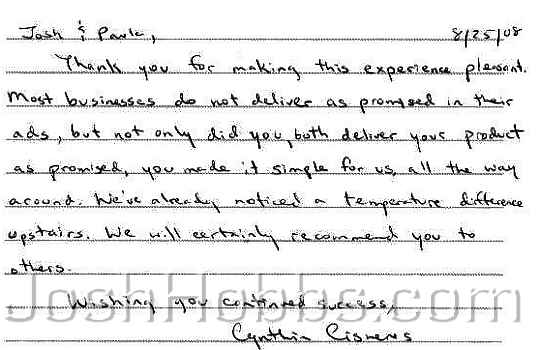 Josh & Paula, 8/25/08
Thank you for making this experience pleasant.
Most businesses do not deliver as promised in their
ads, but not only did you both deliver your product
as promised, you made it simple for us, all the way
around. We've already noticed a temperature difference
upstairs. We will certainly recommend you to
others.
Wishing you continued success,
JoshHobbs.com
Cynthia Cisneros